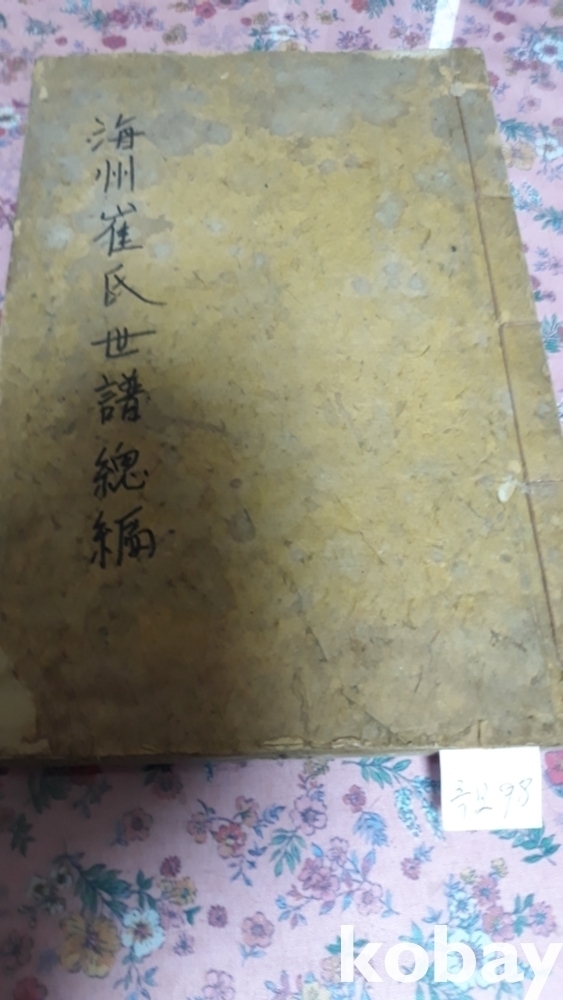 海州崔氏世譜總編
족보98
kobay